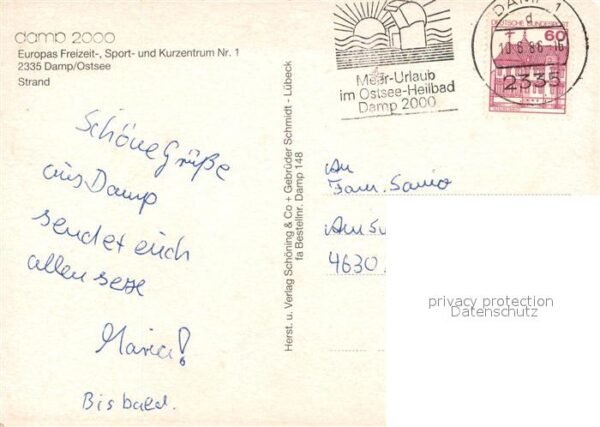 damp 2000
Europas Freizeit-, Sport- und Kurzentrum Nr. 1
2335 Damp/Ostsee
Strand
Schöne Grüße
aus Damp
sendet euch
allen
Maria!
Bis bald.
Herst. u. Verlag Schöning & Co + Gebrüder Schmidt - Lübeck
fa Bestellnr. Damp 148
Meer-Urlaub
im Ostsee-Heilbad
Damp 2000
DAMP 1
d
10.6.86-16
2335
DEUTSCHE BUNDESPOST
60
An
Fam. Sanio
Am
4630
privacy protection
Datenschutz